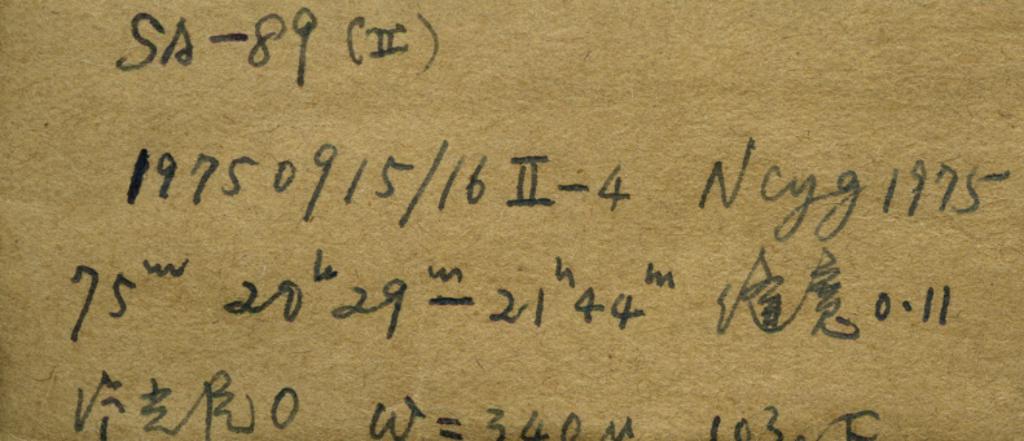 SA-89 (II)
19750915/16 II-4 N Cyg 1975
75ᵐ 20ʰ29ᵐ-21ʰ44ᵐ 缝宽 0.11
0 W=340μ 103a